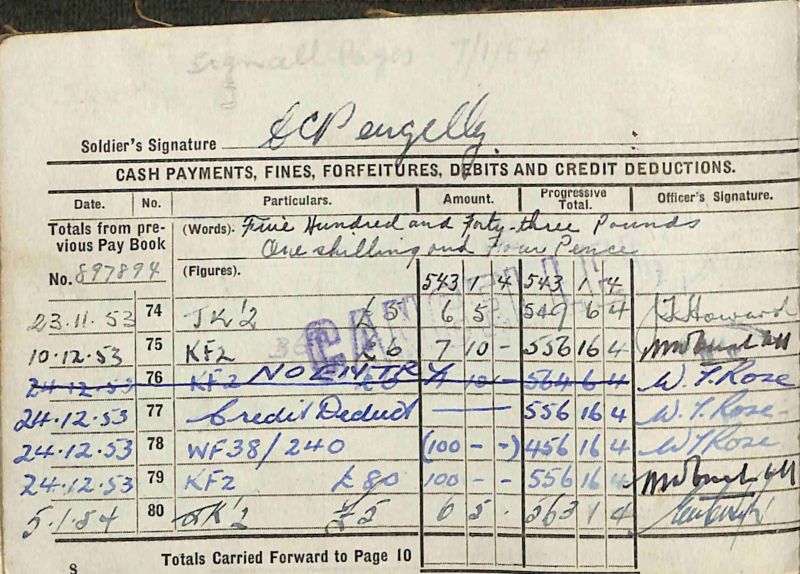 7/1/54
Soldier's Signature SCPengelly
CASH PAYMENTS, FINES, FORFEITURES, DEBITS AND CREDIT DEDUCTIONS.
Date. No. Particulars. Amount. Progressive Total. Officer's Signature.
Totals from previous Pay Book (Words). Five Hundred and Forty-three Pounds
One shilling and Four Pence
No. 897894 (Figures). 543 1 4 543 1 4
23.11.53 74 JK'2 £5 6 5 - 549 6 4 Howard
10.12.53 75 KF2 £6 7 10 - 556 16 4
24.12.53 76 KF2 NO ENTRY £6 7 10 - 564 6 4 W.T.Rose
24.12.53 77 Credit Deduct — 556 16 4 W.T.Rose
24.12.53 78 WF38/240 (100 - -) 456 16 4 W T Rose
24.12.53 79 KF2 £80 100 - - 556 16 4
5.1.54 80 JK'2 £5 6 5 . 563 1 4
8 Totals Carried Forward to Page 10